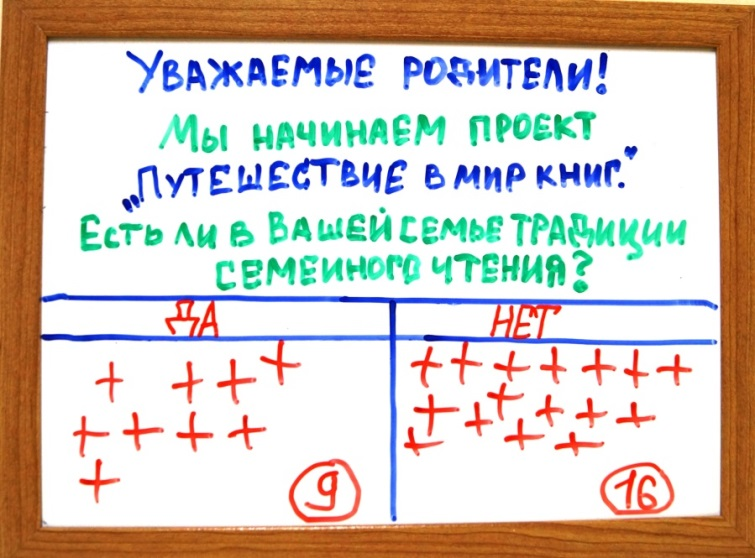 Уважаемые родители!
Мы начинаем проект
„Путешествие в мир книг."
Есть ли в Вашей семье традиции
семейного чтения?
ДА НЕТ
+ + + + + + + + + + +
+ + + + + + + + + +
+ + + +
9 16